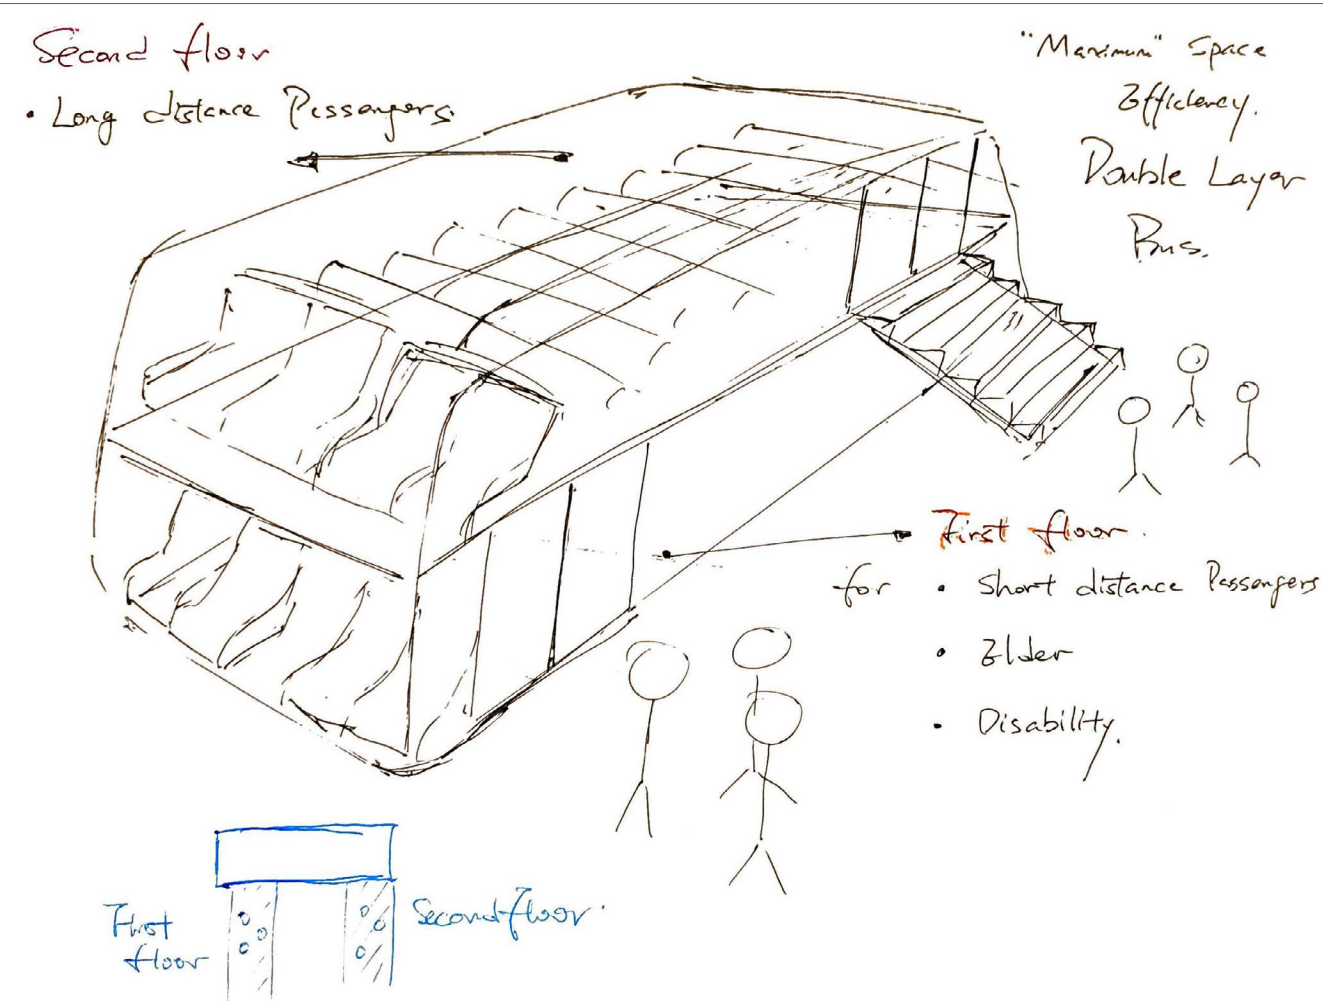 Second floor
• Long distance Passengers.
"Maximum" Space
Efficiency.
Double Layer
Bus.
First floor.
for • Short distance Passengers
• Elder
• Disability.
First
floor
Second floor.